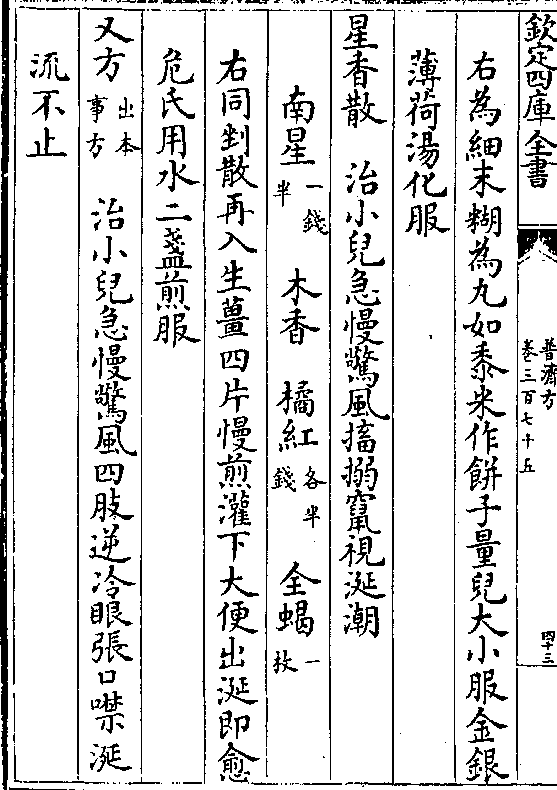 欽定四庫全書
普濟方
卷三百七十五
四十三
右為細末糊為丸如黍米作餅子量兒大小服金銀
薄荷湯化服
星香散　治小兒急慢驚風搐搦竄視涎潮
南星一錢半　木香　橘紅各半錢　全蝎一枚
右同剉散再入生薑四片慢煎灌下大便出涎即愈
危氏用水二盞煎服
又方出本事方　治小兒急慢驚風四肢逆冷眼張口噤涎
流不止